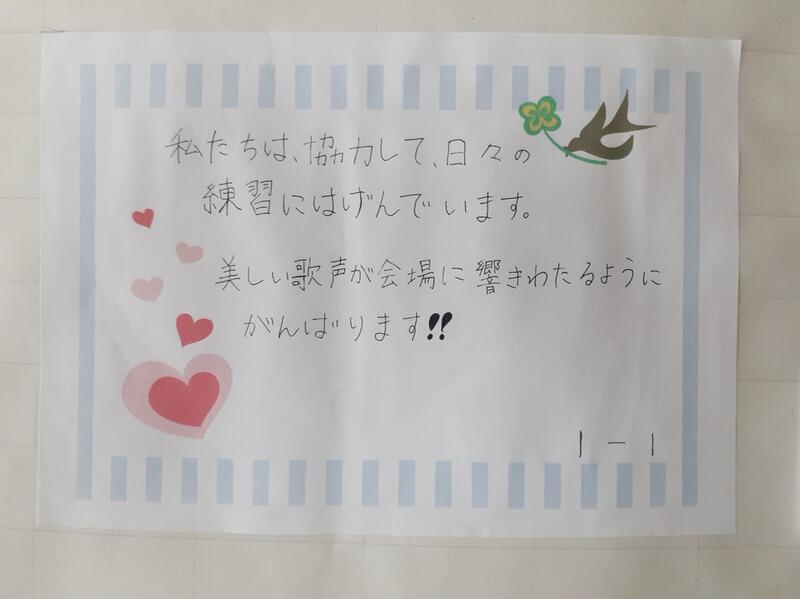 私たちは、協力して、日々の
練習にはげんでいます。
美しい歌声が会場に響きわたるように
がんばります!!
1-1